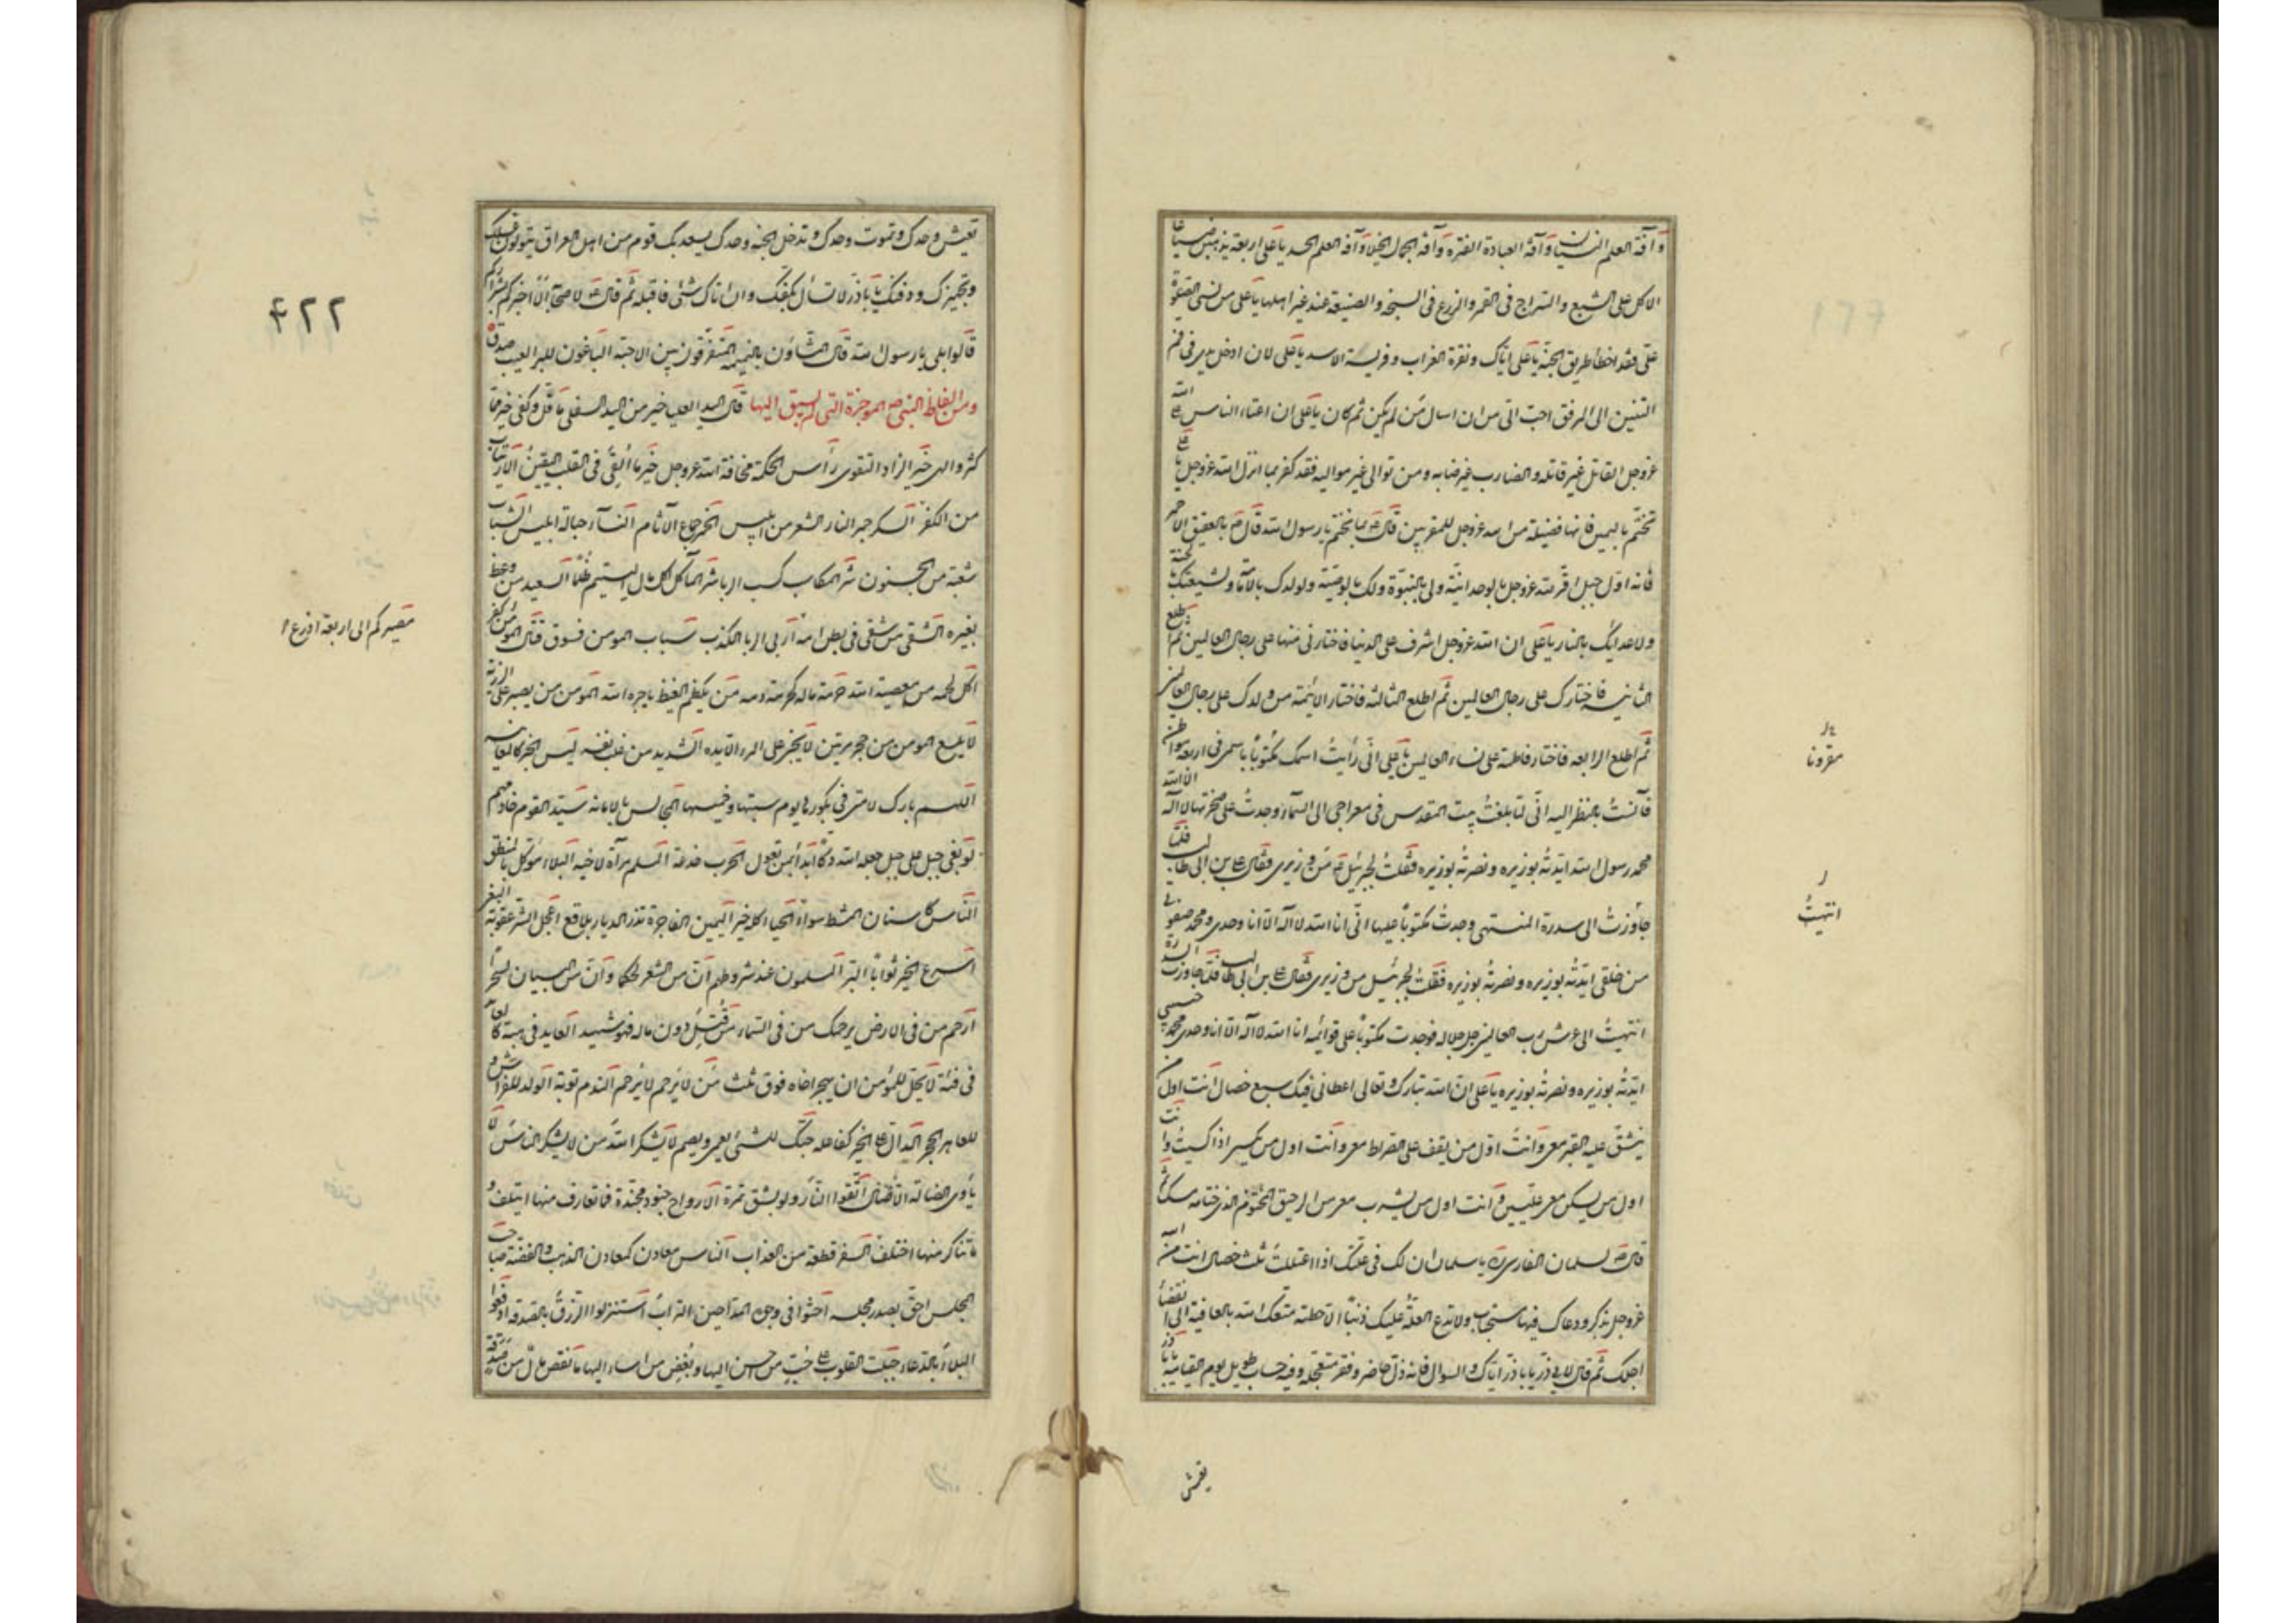 وآفة العلم النسيان وآفة العبادة الفترة وآفة الجمال الخيلا وآفة العلم الحسد يا على اربعة يذهبن ضياعا
الاكل على الشبع والسراج فى القمر والزرع فى السبخة والصنيعة عند غير اهلها يا على من نسى الصلوة
على فقد اخطأ طريق الجنة يا على اياك ونقرة الغراب وفريسة الاسد يا على لان ادخل يدى فى فم
التنين الى المرفق احب الى من ان اسال من لم يكن ثم كان يا على ان اعتاء الناس على الله
عزوجل القاتل غير قاتله والضارب غير ضاربه ومن توالى غير مواليه فقد كفر بما انزل الله عزوجل يا على
تختم باليمين فانها فضيلة من الله عزوجل للمقربين قال بما اتختم يا رسول الله قال بالعقيق الاحمر
فانه اول جبل اقر لله عزوجل بالوحدانية ولى بالنبوة ولك بالوصية ولولدك بالامامة ولشيعتك بالجنة
ولاعدائك بالنار يا على ان الله عزوجل اشرف على الدنيا فاختارنى منها على رجال العالمين ثم اطلع
الثانية فاختارك على رجال العالمين ثم اطلع الثالثة فاختار الائمة من ولدك على رجال العالمين
ثم اطلع الرابعة فاختار فاطمة على نساء العالمين يا على انى رأيت اسمك مكتوبا باسمى فى اربعة مواطن
فآنست بالنظر اليه انى لما بلغت بيت المقدس فى معراجى الى السماء وجدت على صخرتها لا اله الا الله
محمد رسول الله ايدته بوزيره ونصرته بوزيره فقلت لجبرئيل من وزيرى فقال على بن ابى طالب فلما
جاوزت الى سدرة المنتهى وجدت مكتوبا عليها انى انا الله لا اله الا انا وحدى ومحمد صفوتى
من خلقى ايدته بوزيره ونصرته بوزيره فقلت لجبرئيل من وزيرى فقال على بن ابى طالب فلما جاوزت السدرة
انتهيت الى عرش رب العالمين جل جلاله فوجدت مكتوبا على قوائمه انا الله لا اله الا انا وحدى محمد حبيبى
ايدته بوزيره ونصرته بوزيره يا على ان الله تبارك وتعالى اعطانى فيك سبع خصال انت اول من
ينشق عليه القبر معى وانت اول من يقف على الصراط معى وانت اول من يكسى اذا كسيت وانت
اول من يسكن معى عليين وانت اول من يشرب معى من الرحيق المختوم الذى ختامه مسك ثم
قال لسلمان الفارسى يا سلمان ان لك فى علتك اذا اعتللت ثلث خصال انت من الله
عزوجل بذكر ودعاك فيها مستجاب ولا تدع العلة عليك ذنبا الا حطته متعك الله بالعافية الى انقضاء
اجلك ثم قال لابى ذر يا باذر اياك والسوال فانه ذل حاضر وفقر تتعجله وفيه حساب طويل يوم القيامة يا باذر
مقرونا
انتهيت
تعيش
تعيش وحدك وتموت وحدك وتدخل الجنة وحدك يسعد بك قوم من اهل العراق يتولون غسلك
وتجهيزك ودفنك يا باذر لا تسأل بكفك وان اتاك شئ فاقبله ثم قال لاصحابه الا اخبركم بشراركم
قالوا بلى يا رسول الله قال المشاؤن بالنميمة المفرقون بين الاحبة الباغون للبراء العيب صدق
ومن الفاظ النبى ص الموجزة التى لم يسبق اليها قال اليد العليا خير من اليد السفلى ما قل وكفى خير مما
كثر والهى خير الزاد التقوى رأس الحكمة مخافة الله عزوجل خير ما القى فى القلب اليقين الارتياب
من الكفر السكر جمر النار الشعر من ابليس الخمر جماع الآثام النساء حبالة ابليس الشباب
شعبة من الجنون شر المكاسب كسب الربا شر المآكل اكل مال اليتيم ظلما السعيد من وعظ
بغيره الشقى من شقى فى بطن امه اربى الربا الكذب سباب المومن فسوق قتال المومن كفر
اكل لحمه من معصية الله حرمة ماله كحرمة دمه من يكظم الغيظ ياجره الله المومن من يصبر على الرزية
لا يلسع المومن من جحر مرتين لا يجنى على المرء الا يده الشديد من غلب نفسه ليس الخبر كالمعاينة
اللهم بارك لامتى فى بكورها يوم سبتها وخميسها المجالس بالامانة سيد القوم خادمهم
لو بغى جبل على جبل جعله الله دكا ابدأ بمن تعول الحرب خدعة المسلم مرآة لاخيه البلاء موكل بالمنطق
الناس كاسنان المشط سواء الحيا كله خير اليمين الفاجرة تذر الديار بلاقع اعجل الشر عقوبة البغى
اسرع الخير ثوابا البر المسلمون عند شروطهم ان من الشعر لحكما وان من البيان لسحرا
ارحم من فى الارض يرحمك من فى السماء من قتل دون ماله فهو شهيد العايد فى هبته كالعائد
فى قيئه لا يحل للمؤمن ان يهجر اخاه فوق ثلث من لا يرحم لا يرحم الندم توبة الولد للفراش و
للعاهر الحجر الدال على الخير كفاعله حبك للشئ يعمى ويصم لا يشكر الله من لا يشكر الناس لا
يأوى الضالة الا الضال اتقوا النار ولو بشق تمرة الارواح جنود مجندة فما تعارف منها ايتلف و
ما تناكر منها اختلف السفر قطعة من العذاب الناس معادن كمعادن الذهب والفضة صاحب
المجلس احق بصدر مجلسه احثوا فى وجوه المداحين التراب استنزلوا الرزق بالصدقة ادفعوا
البلاء بالدعاء جبلت القلوب على حب من احسن اليها وبغض من اساء اليها ما نقص مال من صدقة
مصيركم الى اربعة اذرع